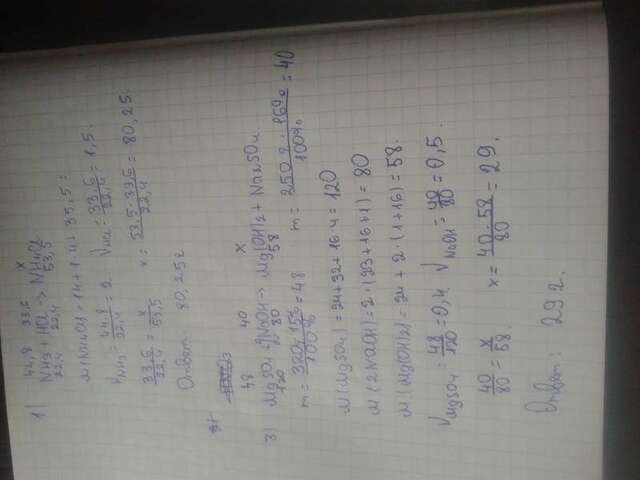 44,8 33,6 x
1) NH3 + HCl -> NH4Cl
22,4 22,4 53,5
M(NH4Cl) = 14 + 1·4 + 35,5 =
νNH3 = 44,8/22,4 = 2 νHCl = 33,6/22,4 = 1,5.
33,6/22,4 = x/53,5 x = 53,5·33,6/22,4 = 80,25.
Ответ 80,25 г
48 40 x
3) MgSO4 + 2NaOH -> Mg(OH)2 + Na2SO4.
120 80 58
m = 320·15%/100% = 48 m = 250 г·16%/100% = 40
M(MgSO4) = 24+32+16·4 = 120
M(2NaOH) = 2·(23+16+1) = 80
M(Mg(OH)2) = 24 + 2·(1+16) = 58.
νMgSO4 = 48/120 = 0,4. νNaOH = 40/80 = 0,5.
40/80 = x/58. x = 40·58/80 = 29.
Ответ: 29 г.